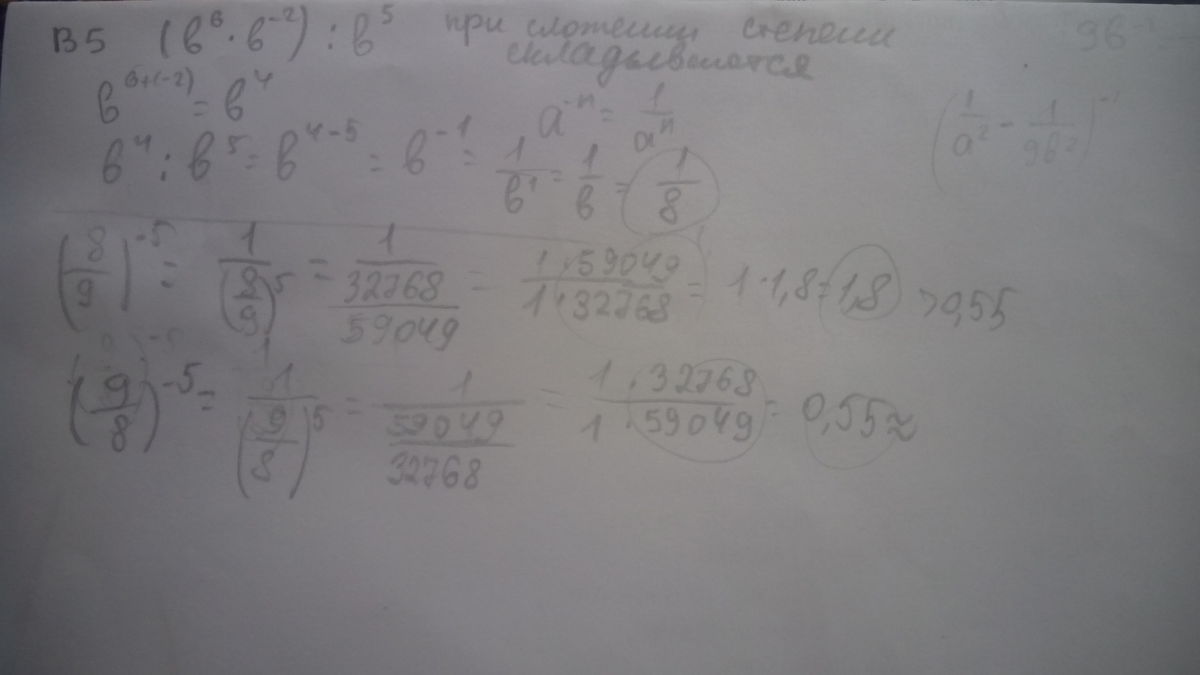 В5 (в⁶ · в⁻²) : в⁵ при сложении степени складываются
в⁶⁺⁽⁻²⁾ = в⁴
a⁻ⁿ = 1/aⁿ
в⁴ : в⁵ = в⁴⁻⁵ = в⁻¹ = 1/в¹ = 1/в = 1/8
(8/9)⁻⁵ = 1/(8/9)⁵ = 1/(32768/59049) = 1·59049/1·32768 = 1·1,8 = 1,8 > 0,55
(9/8)⁻⁵ = 1/(9/8)⁵ = 1/(59049/32768) = 1·32768/1·59049 = 0,55≈
(1/a² - 1/9в²)⁻¹